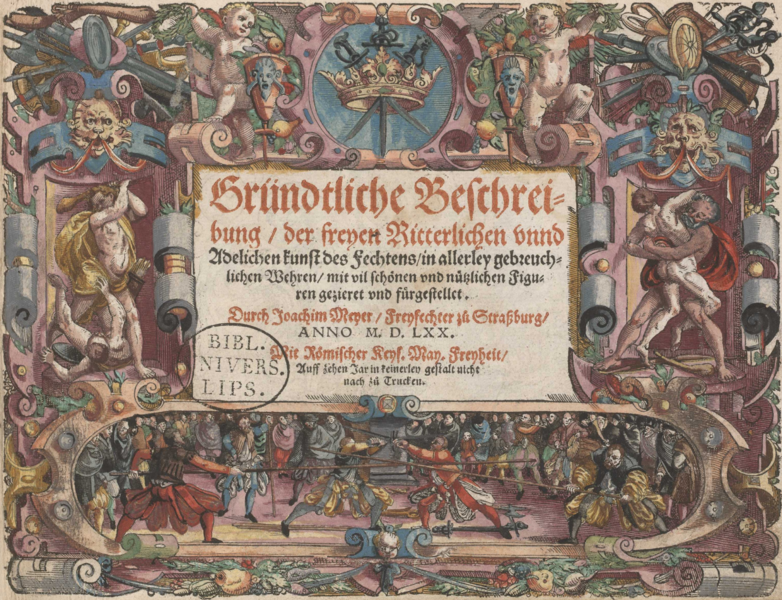 Gründtliche Beschrei⸗
bung / der freyen Ritterlichen vnnd
Adelichen kunst des Fechtens / in allerley gebreuch⸗
lichen Wehren / mit vil schönen vnd nützlichen Figu⸗
ren gezieret vnd fürgestellet.
Durch Joachim Meyer / Freyfechter zů Straßburg /
ANNO M. D. LXX.
Mit Römischer Keys. May. Freyheit /
Auff zehen Jar in keinerley gestalt nicht
nach zů Trucken.
BIBL.
NIVERS.
LIPS.